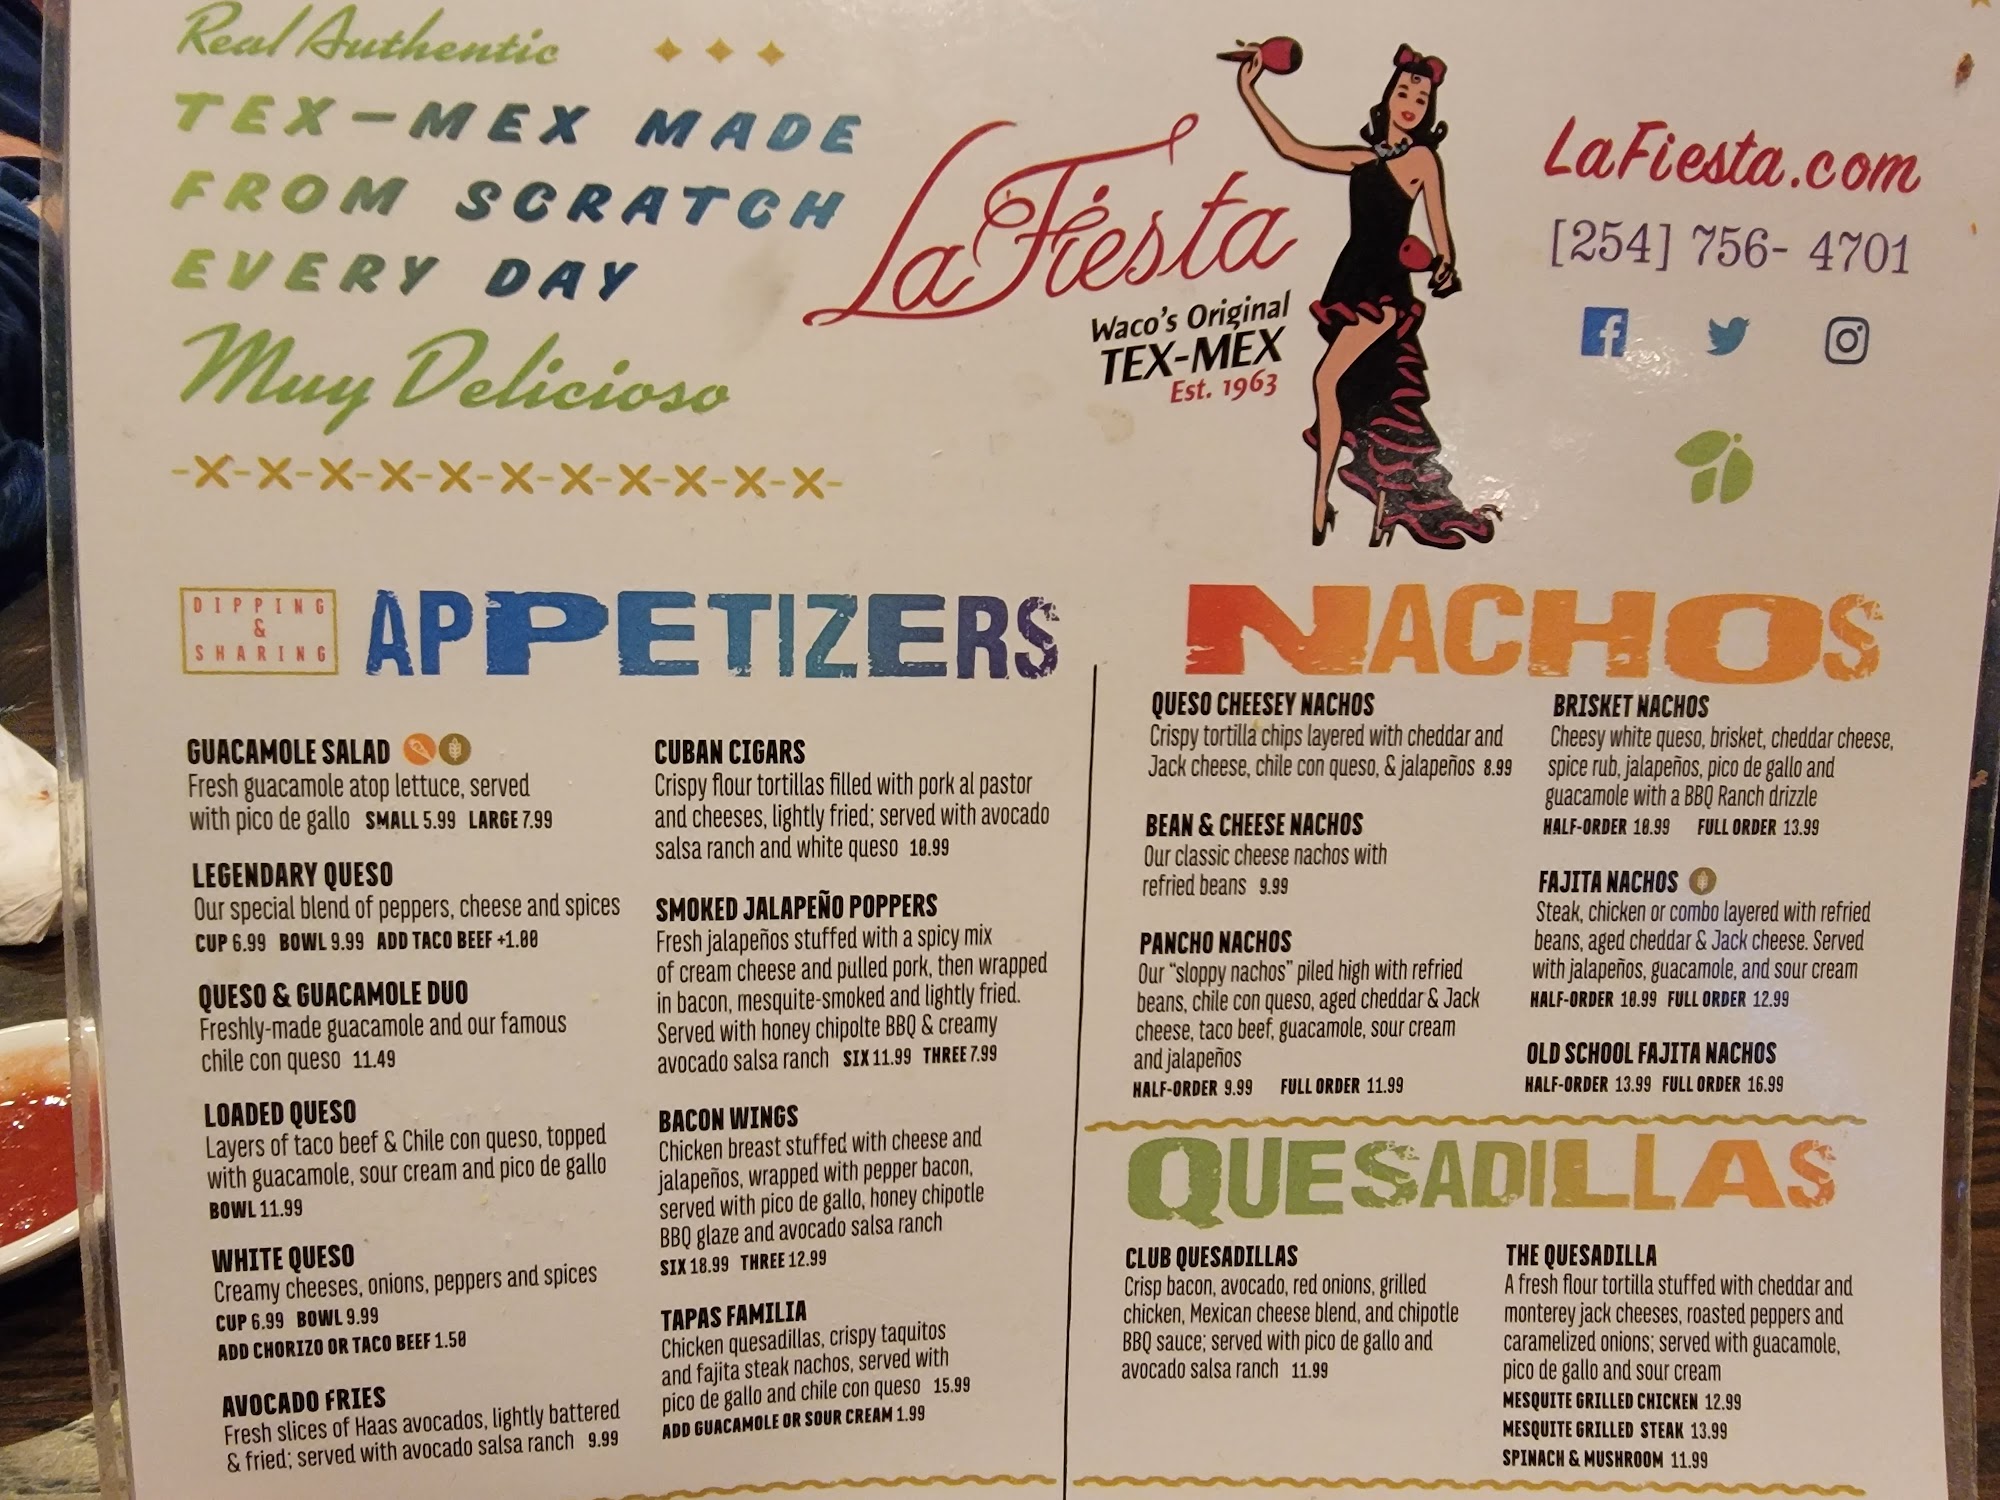 Real Authentic
TEX-MEX MADE
FROM SCRATCH
EVERY DAY
Muy Delicioso
La Fiesta
Waco's Original
TEX-MEX
Est. 1963
LaFiesta.com
[254] 756-4701
DIPPING
&
SHARING
APPETIZERS
GUACAMOLE SALAD
Fresh guacamole atop lettuce, served
with pico de gallo SMALL 5.99 LARGE 7.99
LEGENDARY QUESO
Our special blend of peppers, cheese and spices
CUP 6.99 BOWL 9.99 ADD TACO BEEF +1.00
QUESO & GUACAMOLE DUO
Freshly-made guacamole and our famous
chile con queso 11.49
LOADED QUESO
Layers of taco beef & Chile con queso, topped
with guacamole, sour cream and pico de gallo
BOWL 11.99
WHITE QUESO
Creamy cheeses, onions, peppers and spices
CUP 6.99 BOWL 9.99
ADD CHORIZO OR TACO BEEF 1.50
AVOCADO FRIES
Fresh slices of Haas avocados, lightly battered
& fried; served with avocado salsa ranch 9.99
CUBAN CIGARS
Crispy flour tortillas filled with pork al pastor
and cheeses, lightly fried; served with avocado
salsa ranch and white queso 10.99
SMOKED JALAPEÑO POPPERS
Fresh jalapeños stuffed with a spicy mix
of cream cheese and pulled pork, then wrapped
in bacon, mesquite-smoked and lightly fried.
Served with honey chipolte BBQ & creamy
avocado salsa ranch SIX 11.99 THREE 7.99
BACON WINGS
Chicken breast stuffed with cheese and
jalapeños, wrapped with pepper bacon,
served with pico de gallo, honey chipotle
BBQ glaze and avocado salsa ranch
SIX 18.99 THREE 12.99
TAPAS FAMILIA
Chicken quesadillas, crispy taquitos
and fajita steak nachos, served with
pico de gallo and chile con queso 15.99
ADD GUACAMOLE OR SOUR CREAM 1.99
NACHOS
QUESO CHEESEY NACHOS
Crispy tortilla chips layered with cheddar and
Jack cheese, chile con queso, & jalapeños 8.99
BEAN & CHEESE NACHOS
Our classic cheese nachos with
refried beans 9.99
PANCHO NACHOS
Our "sloppy nachos" piled high with refried
beans, chile con queso, aged cheddar & Jack
cheese, taco beef, guacamole, sour cream
and jalapeños
HALF-ORDER 9.99 FULL ORDER 11.99
BRISKET NACHOS
Cheesy white queso, brisket, cheddar cheese,
spice rub, jalapeños, pico de gallo and
guacamole with a BBQ Ranch drizzle
HALF-ORDER 10.99 FULL ORDER 13.99
FAJITA NACHOS
Steak, chicken or combo layered with refried
beans, aged cheddar & Jack cheese. Served
with jalapeños, guacamole, and sour cream
HALF-ORDER 10.99 FULL ORDER 12.99
OLD SCHOOL FAJITA NACHOS
HALF-ORDER 13.99 FULL ORDER 16.99
QUESADILLAS
CLUB QUESADILLAS
Crisp bacon, avocado, red onions, grilled
chicken, Mexican cheese blend, and chipotle
BBQ sauce; served with pico de gallo and
avocado salsa ranch 11.99
THE QUESADILLA
A fresh flour tortilla stuffed with cheddar and
monterey jack cheeses, roasted peppers and
caramelized onions; served with guacamole,
pico de gallo and sour cream
MESQUITE GRILLED CHICKEN 12.99
MESQUITE GRILLED STEAK 13.99
SPINACH & MUSHROOM 11.99